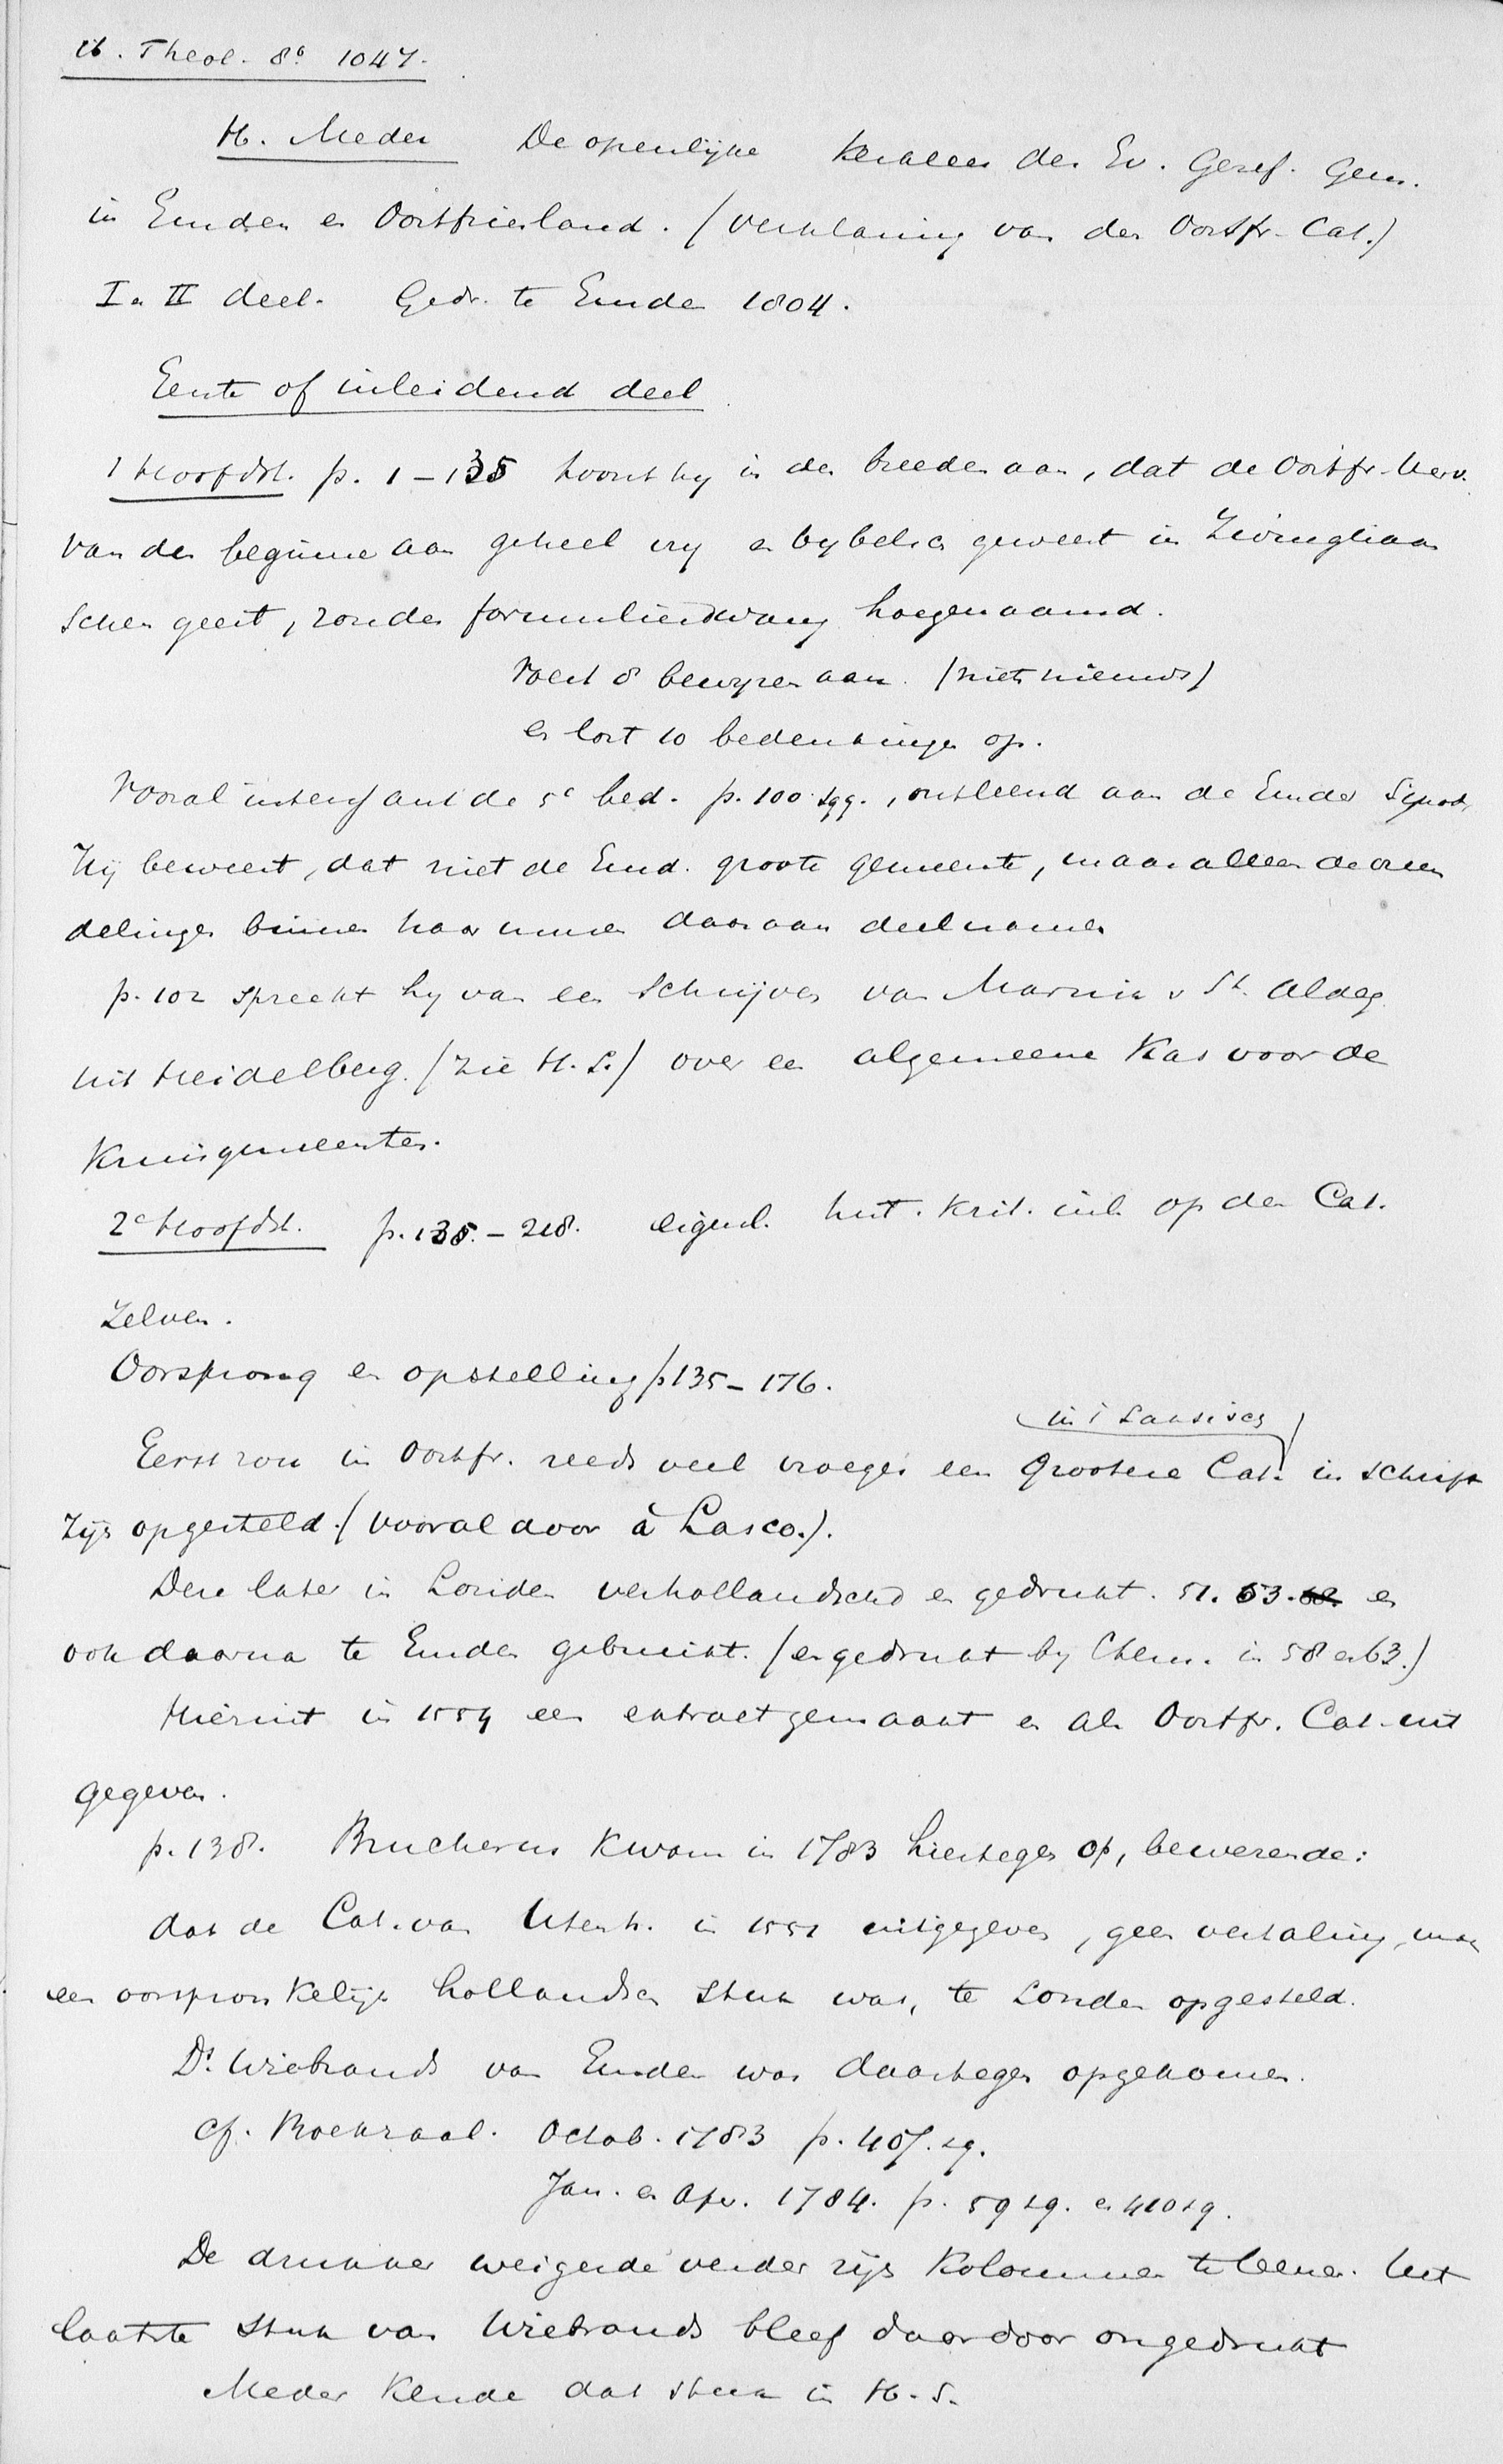 Theol. 8° 1047.
H. Meder De openlijke Kerkleer der Ev. Geref. Gem.
in Emden en Oostfriesland. (Verklaring van den Oostfr. Cat.)
I en II deel. Gedr. te Emden 1804.
Eerste of inleidend deel
1 Hoofdst. p. 1–135 toont hy in den breeden aan, dat de Oostfr. Herv.
van den beginne aan geheel vry en bybelsch geweest in Zwingliaan
schen geest, zonder formulierdwang hoegenaamd.
Voert 8 bewyzen aan. (niets nieuws)
en lost 10 bedenkingen op.
Vooral interessant de 5e bed. p. 100 sqq., ontleend aan de Emder Synode
Hij beweert, dat niet de Emd. groote gemeente, maar alleen de vreem
delingen binnen haar muren daaraan deelnamen
p. 102 spreekt hy van een schrijven van Marnix v St. Aldeg.
uit Heidelberg. (zie H.S.) over een algemeene Kas voor de
Kruisgemeenten.
2e Hoofdst. p. 135.–218. eigenl. hist. krit. inl. op den Cat.
Zelven.
Oorsprong en opstelling p 135–176.
in 't Saksisch
Eerst zou in Oostfr. reeds veel vroeger een Grootere Cat. in schrift
zijn opgesteld. (vooral door à Lasco.).
Deze later in Londen verhollandscht en gedrukt. 51. 53. en
ook daarna te Emden gebruikt. (en gedrukt by Ctem. in 58 en 63.)
Hieruit in 1554 een extract gemaakt en als Oostfr. Cat. uit
gegeven.
p. 138. Brucherus kwam in 1783 hiertegen op, bewerende:
dat de Cat. van Utenh. in 1551 uitgegeven, geen vertaling, maar
een oorspronkelijk hollandsch stuk was, te Londen opgesteld.
Ds. Wiebrands van Emden was daartegen opgekomen.
cf. Boekzaal. Octob. 1783 p. 407. sq.
Jan. en Apr. 1784. p. 59 sq. en 410 sq.
De drukker weigerde verder zijn kolommen te leenen. Het
laatste stuk van Wiebrands bleef daardoor ongedrukt
Meder kende dat stuk in H.S.